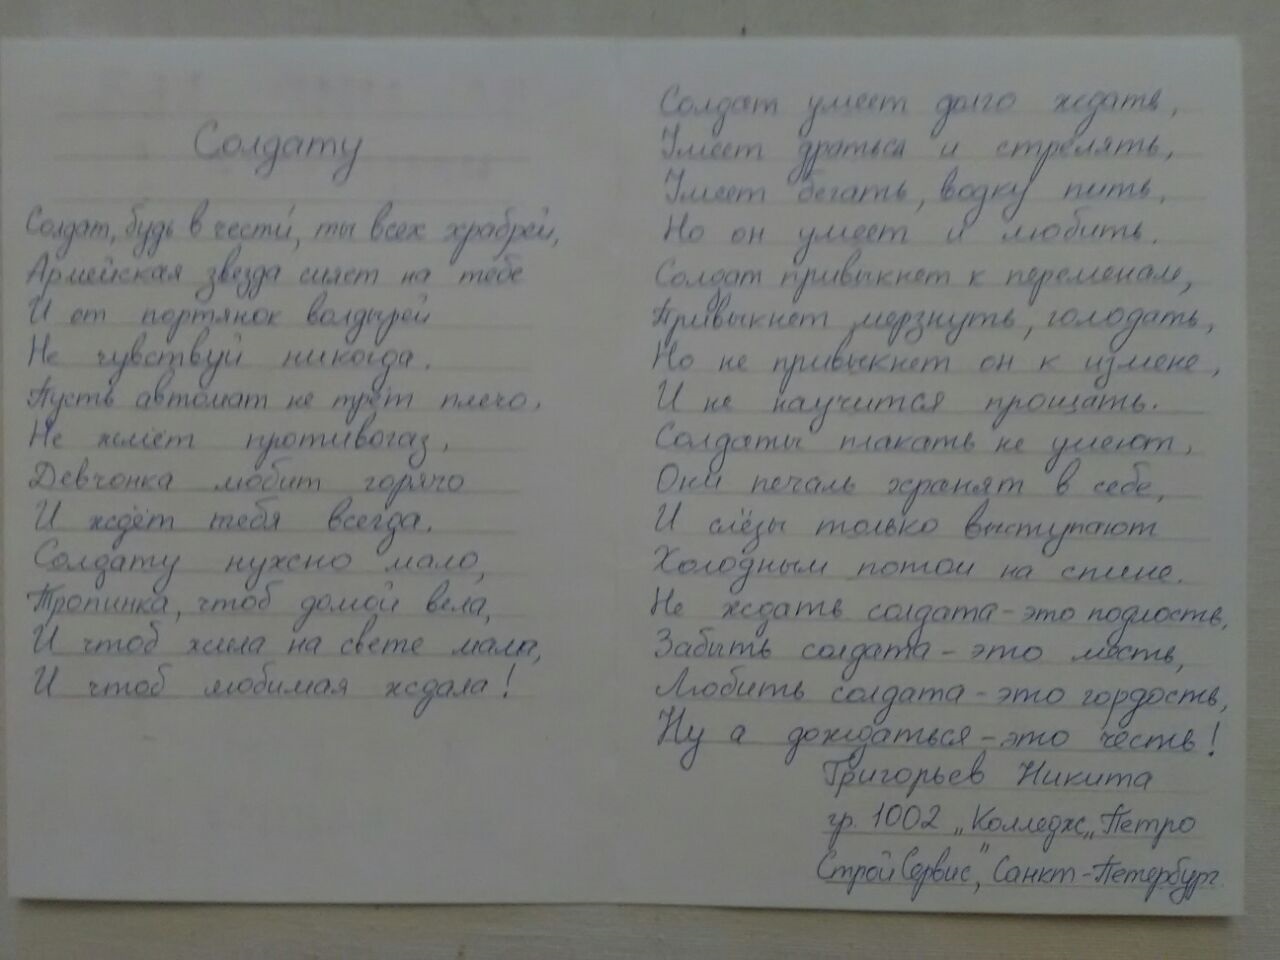 Солдату
Солдат, будь в чести, ты всех храбрей,
Армейская звезда сияет на тебе
И от портянок волдырей
Не чувствуй никогда.
Пусть автомат не трёт плечо,
Не жмёт противогаз,
Девчонка любит горячо
И ждёт тебя всегда.
Солдату нужно мало,
Тропинка, чтоб домой вела,
И чтоб жила на свете мама,
И чтоб любимая ждала!
Солдат умеет долго ждать,
Умеет драться и стрелять,
Умеет бегать, водку пить,
Но он умеет и любить.
Солдат привыкнет к переменам,
Привыкнет мерзнуть, голодать,
Но не привыкнет он к измене,
И не научится прощать.
Солдаты плакать не умеют,
Они печаль хранят в себе,
И слёзы только выступают
Холодным потом на спине.
Не ждать солдата - это подлость,
Забыть солдата - это месть,
Любить солдата - это гордость,
Ну а дождаться - это честь!
Григорьев Никита
гр. 1002 „Колледж „Петро
СтройСервис", Санкт-Петербург.